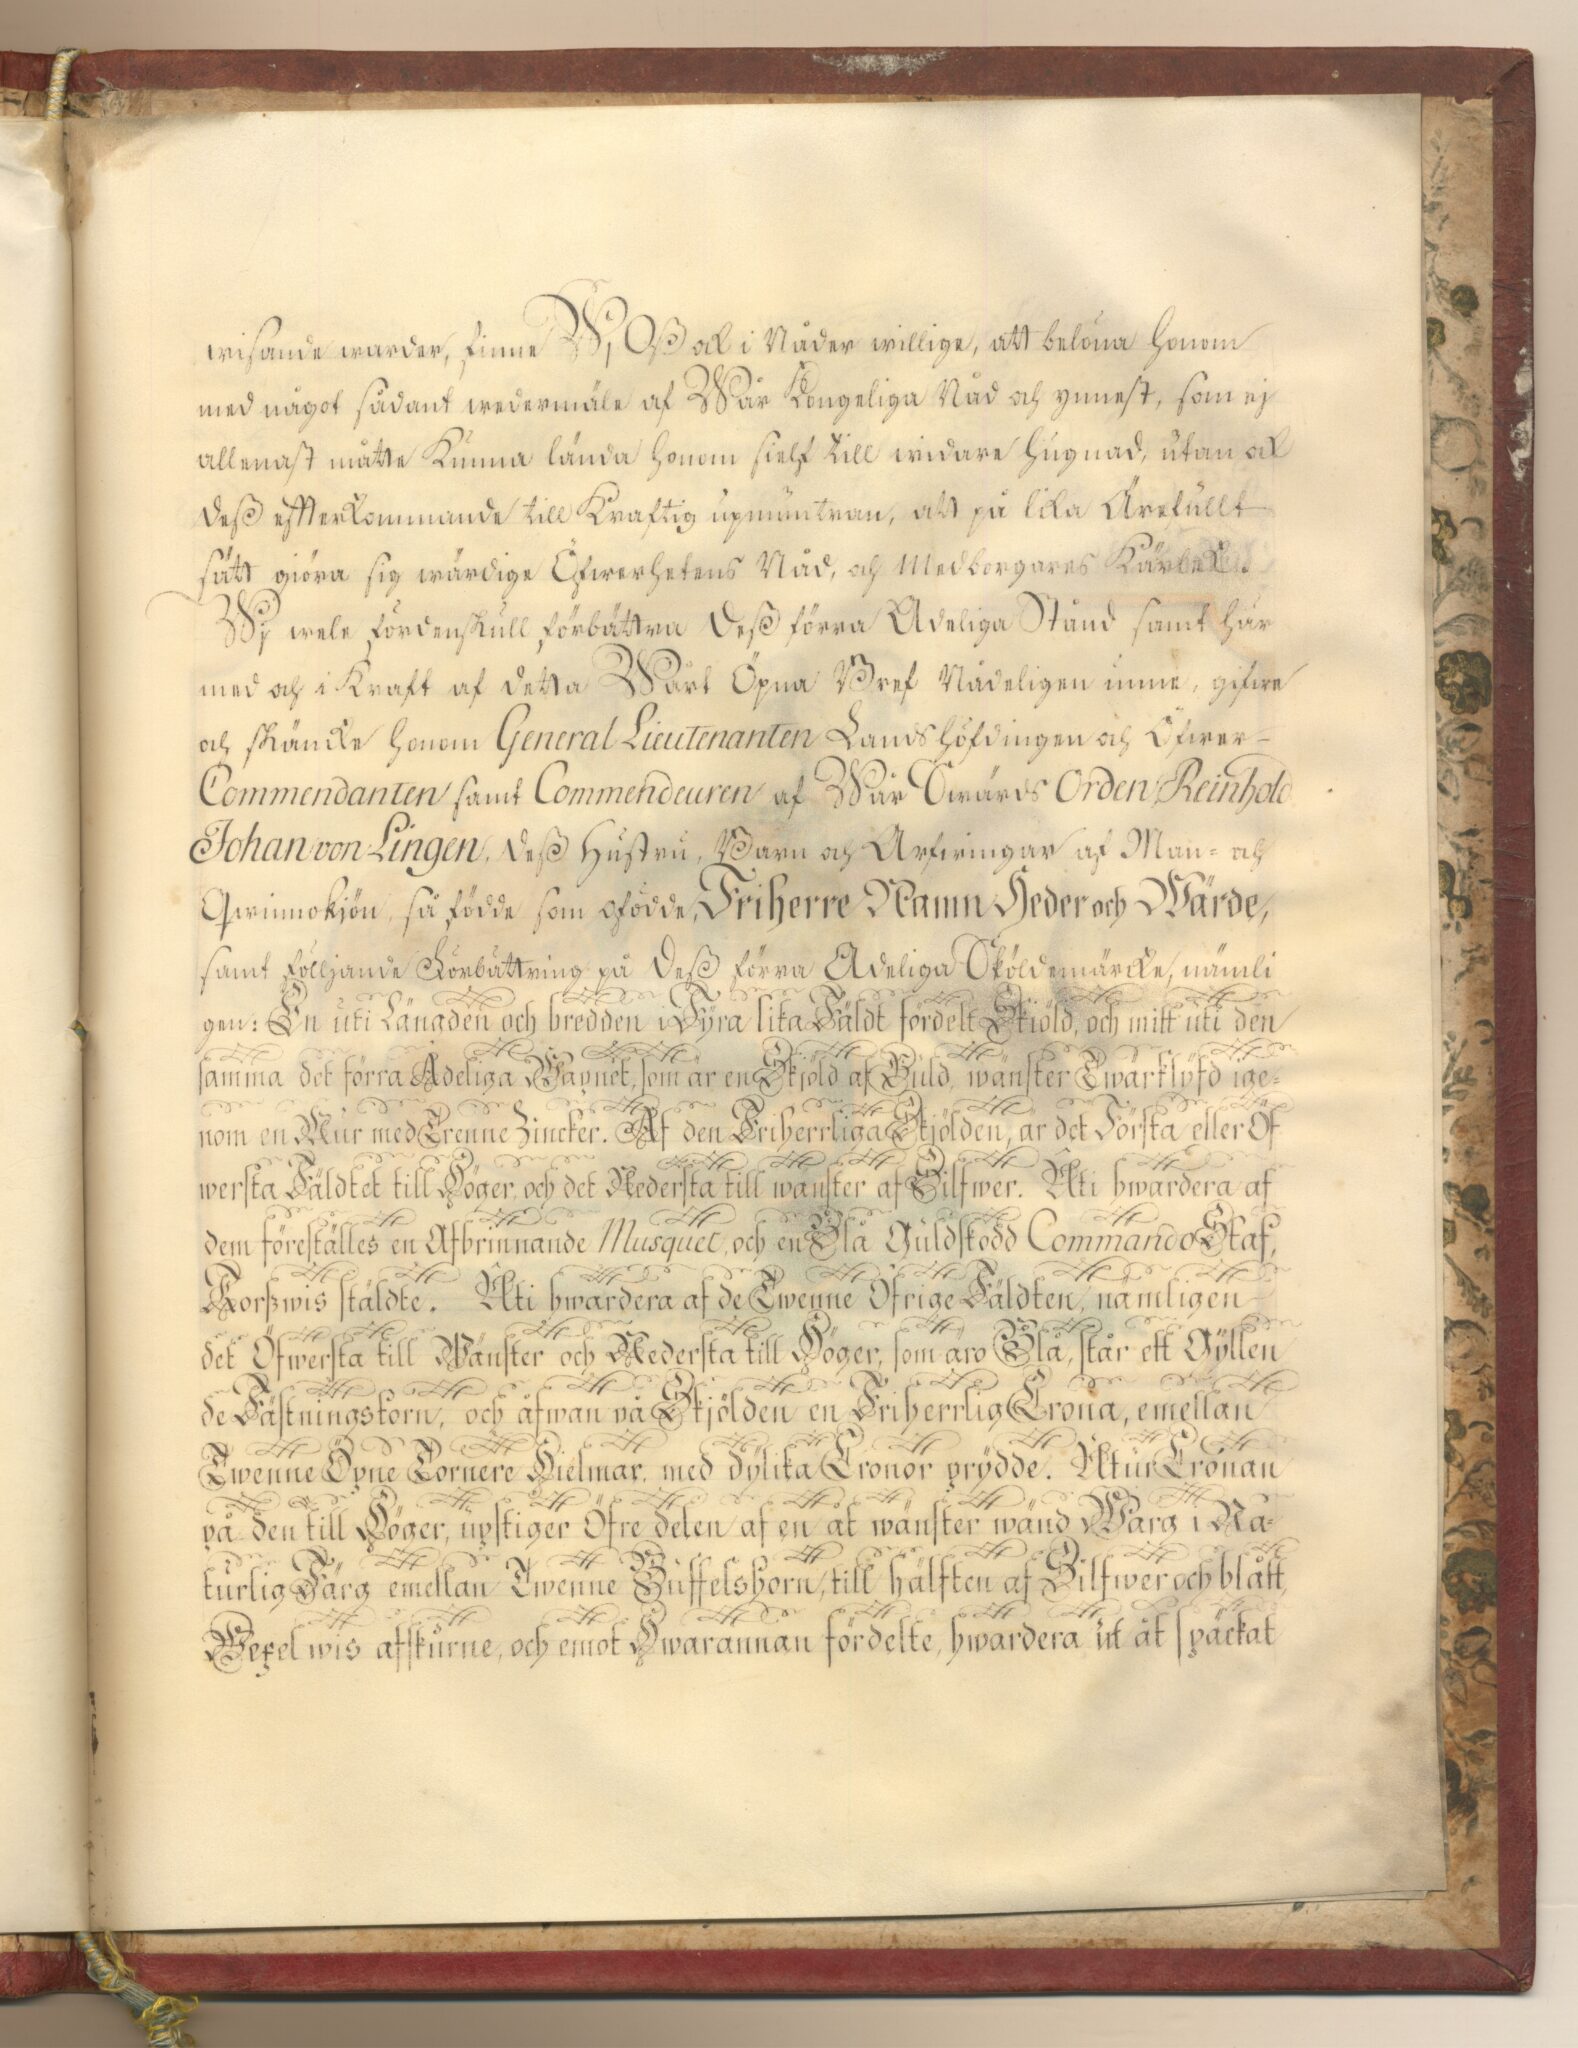 wisande warder, finne Wj Oß ok i Nåder willige, att belöna honom
med något sådant wedermäle af Wår Kongeliga Nåd och ynnest, som ej
allenast måtte Kunna lända honom sielf till widare hugnad, utan ok
deß effterkommande till Kraftig upmuntran, att på lika Ärefullt
sätt giöra sig wärdige Öfwerhetens Nåd, och Medborgares Kärlek.
Wj wele fördenskull förbättra Deß förra Adeliga Stånd samt här
med och i Kraft af detta Wårt Öpna Bref Nådeligen unne, gifwe
och skäncke honom General Lieutenanten Landshöfdingen och Öfwer-
Commendanten samt Commendeuren af Wår Swärds Orden Reinhold
Johan von Lingen, Deß Hustru, Barn och Arfwingar af Man- och
Qwinnokjön, så födde som ofödde, Friherre Namn Heder och Wärde,
samt följande Förbättring på Deß förra Adeliga Sköldemärcke, nämli
gen: En uti Längden och bredden i Fyra lika Fäldt fördelt Skiöld, och mitt uti den
samma det förra Adeliga Wapnet, som är en Skjöld af Guld, wänster Twärklyfd ige-
nom en Mur med Trenne Zincker. Af den Friherrliga Skjölden, är det Första eller Öf
wersta Fäldtet till Höger, och det Nedersta till wänster af Silfwer. Uti hwardera af
dem föreställes en Afbrinnande Musquet, och en Blå Guldskodd Commando Staf,
Korßwis ståldte. Uti hwardera af de Twenne Öfrige Fäldten, nämligen
det Öfwersta till Wänster och Nedersta till Höger, som äro Blå, står ett Gyllen
de Fästningstorn, och åfwan på Skjölden en Friherrlig Crona, emellan
Twenne Öpne Tornere Hielmar, med dylika Cronor prydde. Utur Cronan
på den till Höger, upstiger Öfre delen af en åt wänster wänd Warg i Na-
turlig Färg emellan Twenne Buffelshorn, till hälften af Silfwer och blått,
Wexelwis afskurne, och emot Hwarannan fördelte, hwardera ut åt späckat